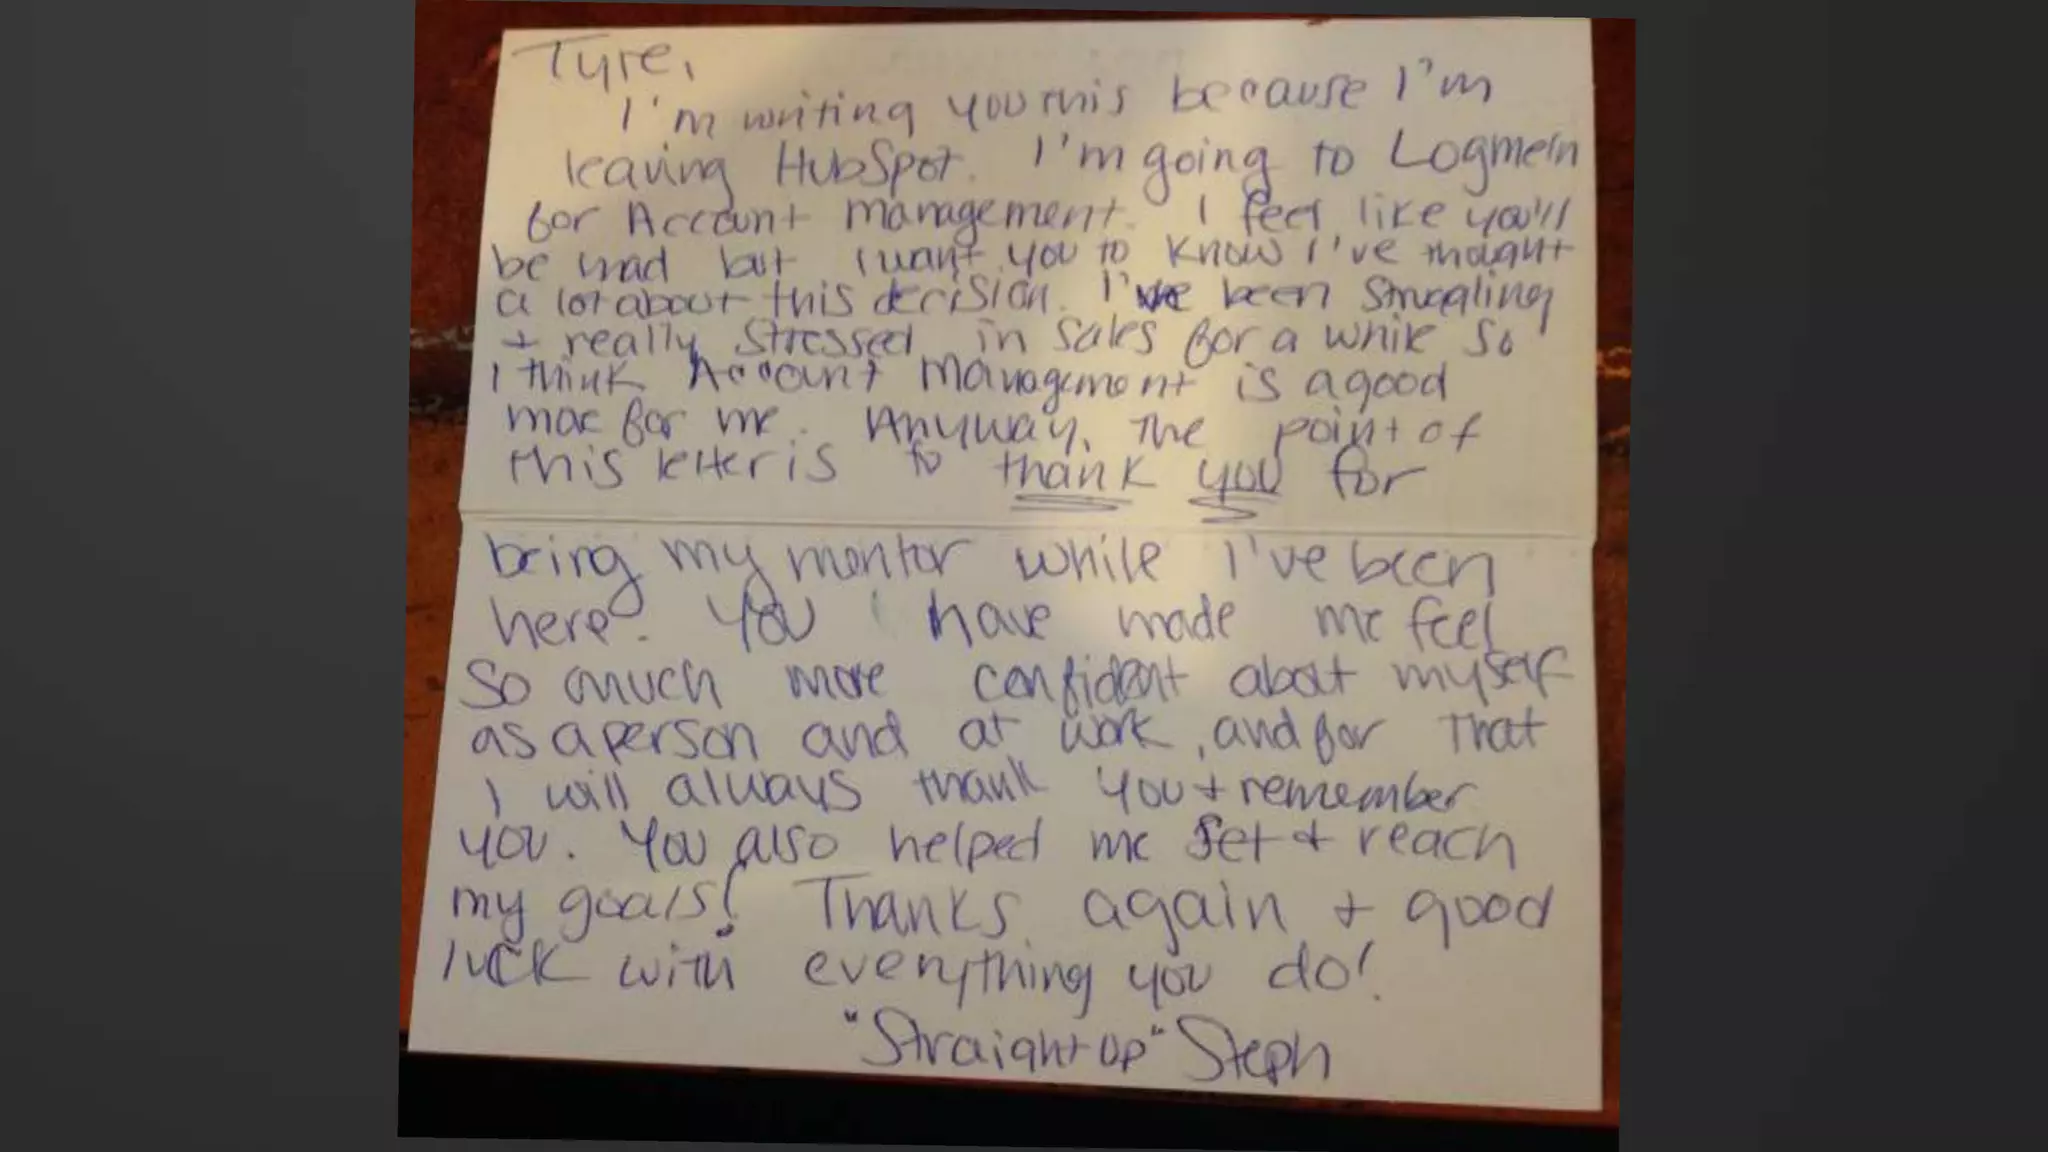 Tyre,
I'm writing you this because I'm
leaving HubSpot. I'm going to Logmein
for Account Management. I feel like you'll
be mad but I want you to know I've thought
a lot about this decision. I've been struggling
+ really stressed in sales for a while so
I think Account Management is a good
move for me. Anyway, the point of
this letter is to thank you for
being my mentor while I've been
here. You have made me feel
so much more confident about myself
as a person and at work, and for that
I will always thank you + remember
you. You also helped me set + reach
my goals! Thanks again + good
luck with everything you do!
"Straight up" Steph